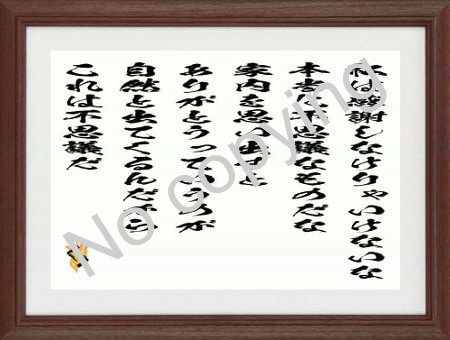 私は感謝しなけりゃいけないな
本当に不思議なものだな
家内を思い出すと
ありがとうっていうのが
自然と出てくるんだから
これは不思議だ
No copying